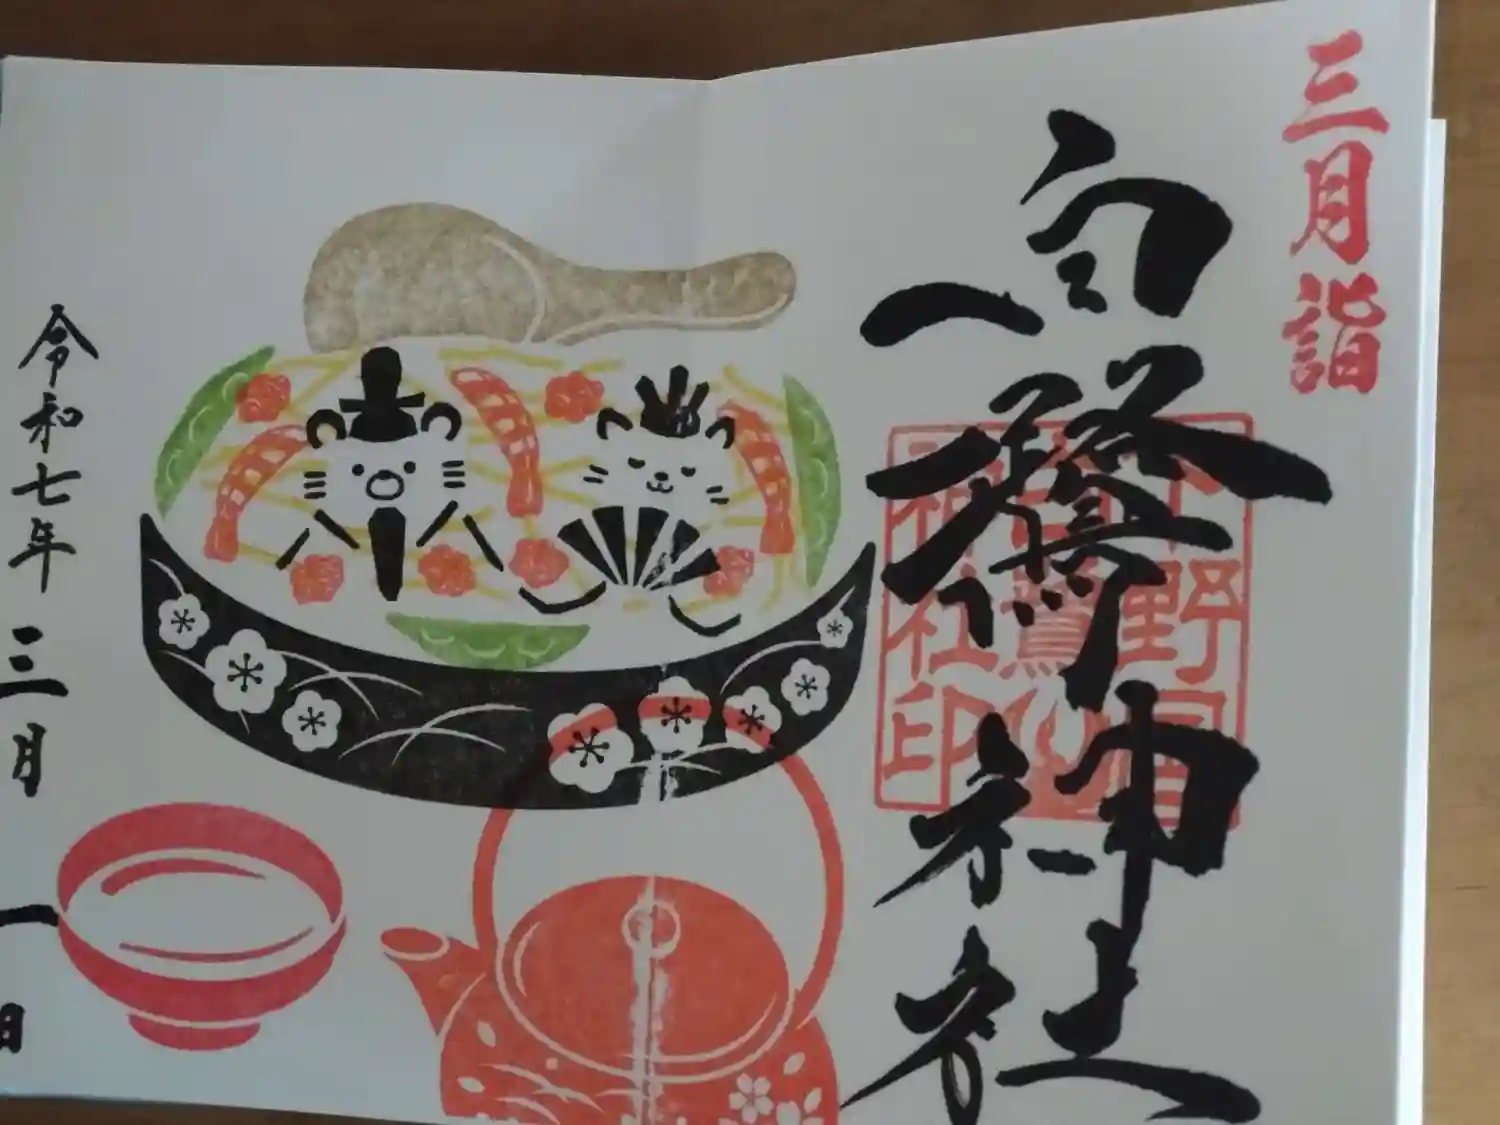 三月詣
白鷺神社
下野國
神社印
令和七年三月一日